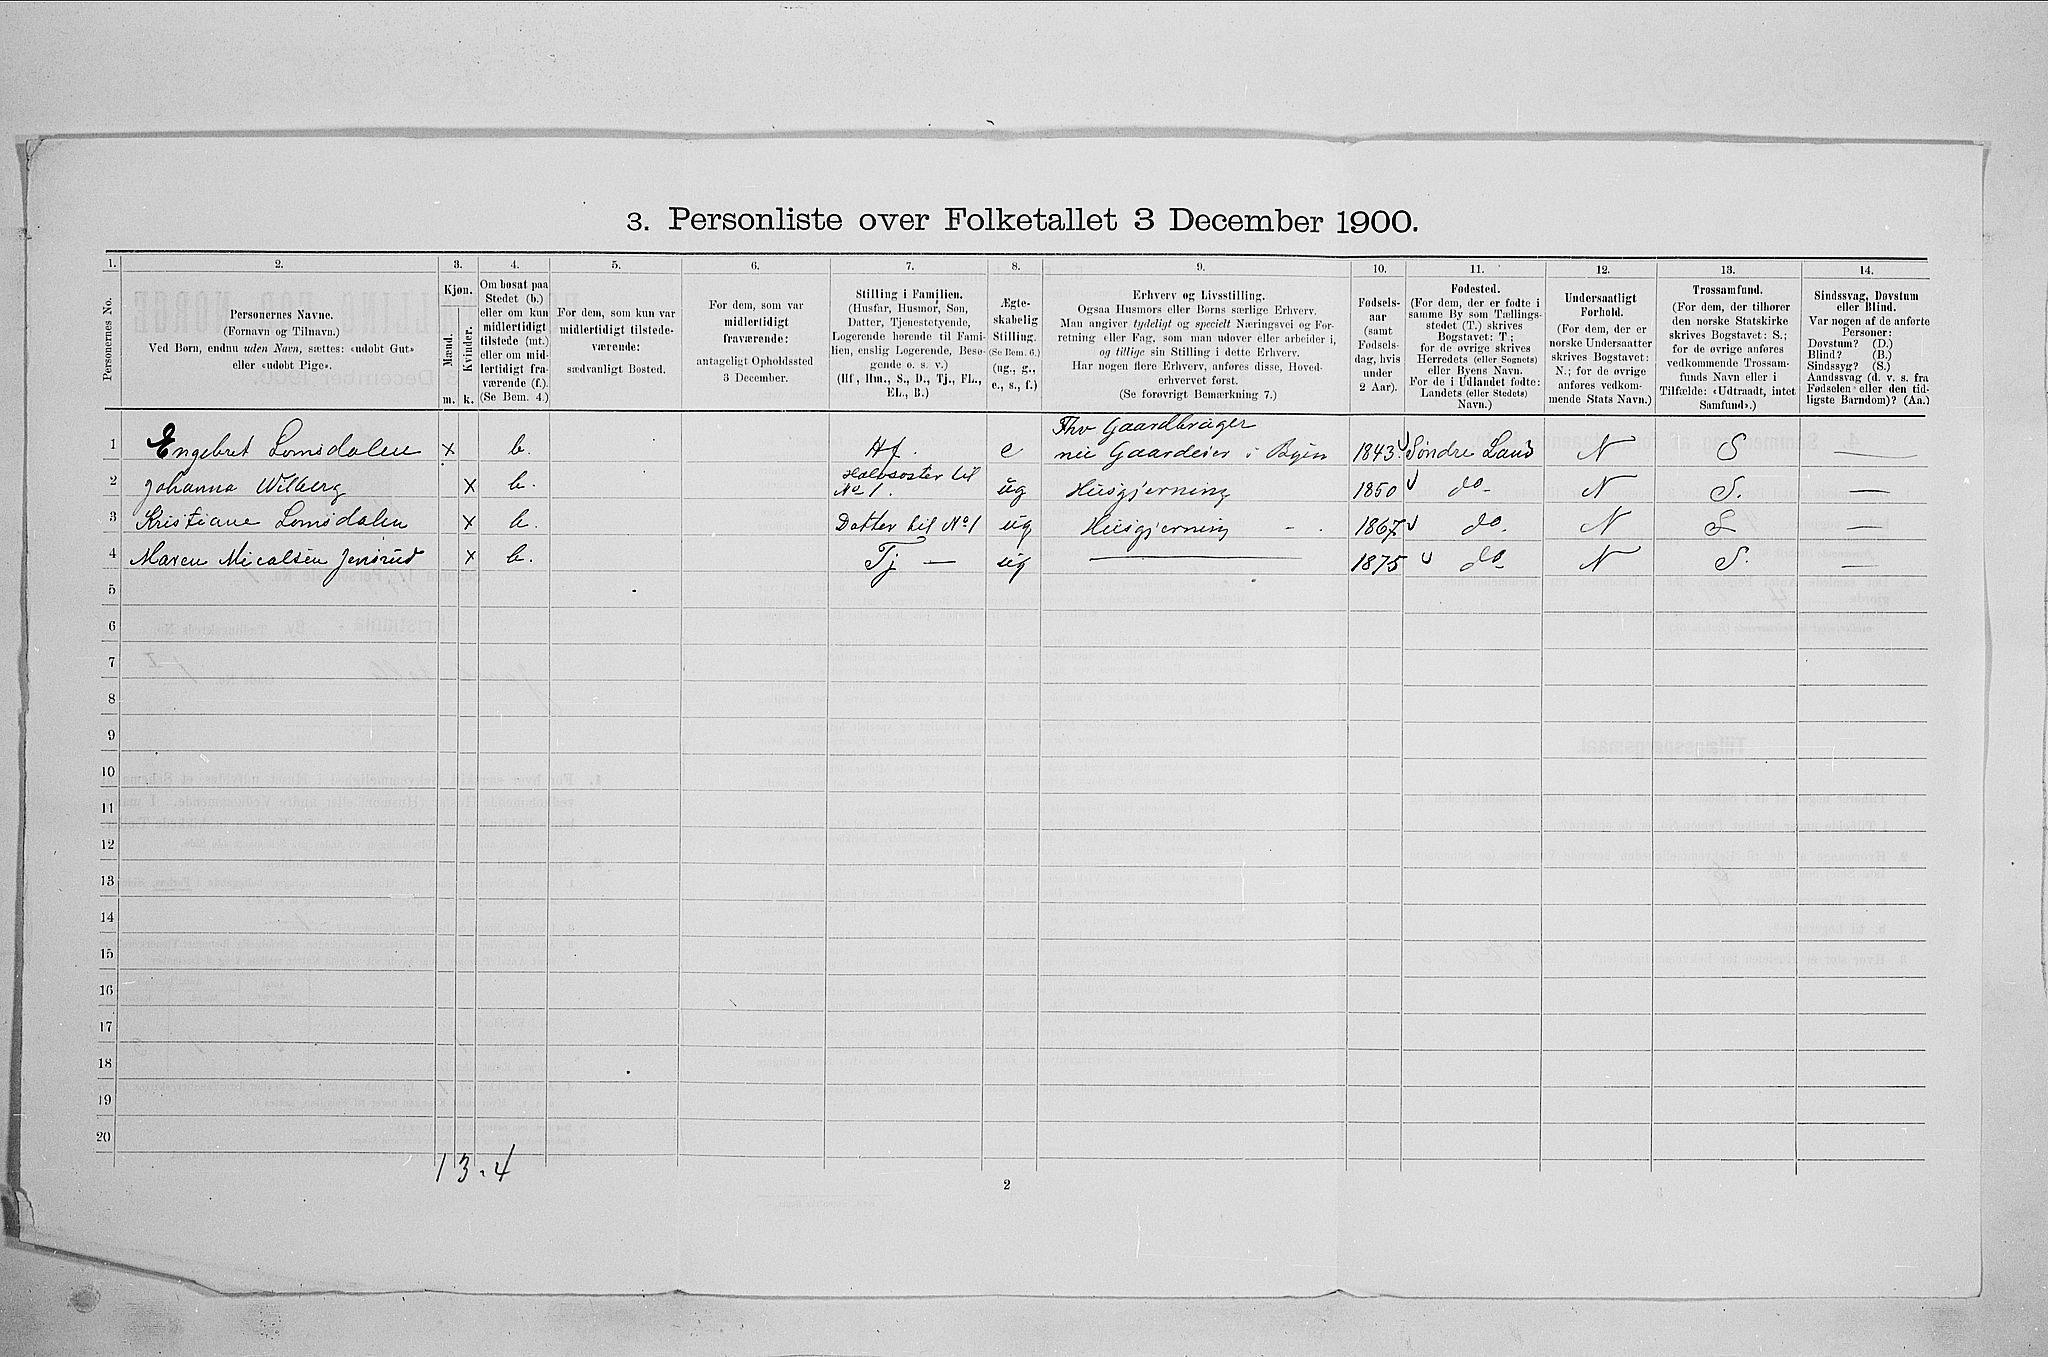 3. Personliste over Folketallet 3 December 1900.
1. 2. 3. 4. 5. 6. 7. 8. 9. 10. 11. 12. 13. 14.
Personernes No.
Personernes Navne.
(Fornavn og Tilnavn.)
Ved Børn, endnu uden Navn, sættes: «udøbt Gut»
eller «udøbt Pige».
Kjøn.
Mænd.
Kvinder.
m. k.
Om bosat paa
Stedet (b.)
eller om kun
midlertidigt
tilstede (mt.)
eller om mid-
lertidigt fra-
værende (f.).
(Se Bem. 4.)
For dem, som kun var
midlertidigt tilstede-
værende:
sædvanligt Bosted.
For dem, som var
midlertidigt
fraværende:
antageligt Opholdssted
3 December.
Stilling i Familien.
(Husfar, Husmor, Søn,
Datter, Tjenestetyende,
Logerende hørende til Fami-
lien, enslig Logerende, Besø-
gende o. s. v.)
(Hf., Hm., S., D., Tj., FL.,
EL., B.)
Ægte-
skabelig
Stilling.
(Se Bem. 6.)
(ug., g.,
e., s., f.)
Erhverv og Livsstilling.
Ogsaa Husmors eller Børns særlige Erhverv.
Man angiver tydeligt og specielt Næringsvei og For-
retning eller Fag, som man udøver eller arbeider i,
og tillige sin Stilling i dette Erhverv.
Har nogen flere Erhverv, anføres disse, Hoved-
erhvervet først.
(Se forøvrigt Bemærkning 7.)
Fødsels-
aar
(samt
Fødsels-
dag, hvis
under
2 Aar).
Fødested.
(For dem, der er fødte i
samme By som Tællings-
stedet (T.) skrives
Bogstavet: T;
for de øvrige skrives
Herredets (eller Sognets)
eller Byens Navn.
For de i Udlandet fødte:
Landets (eller Stedets)
Navn.)
Undersaatligt
Forhold.
(For dem, der er
norske Undersaatter
skrives Bogstavet:
N.; for de øvrige
anføres vedkom-
mende Stats Navn.)
Trossamfund.
(For dem, der tilhører
den norske Statskirke
skrives Bogstavet: S.;
for de øvrige anføres
vedkommende Trossam-
funds Navn eller i
Tilfælde: «Udtraadt, intet
Samfund».)
Sindssvag, Døvstum
eller Blind.
Var nogen af de anførte
Personer:
Døvstum? (D.)
Blind? (B.)
Sindssyg? (S.)
Aandssvag (d. v. s. fra
Fødselen eller den tid-
ligste Barndom)? (Aa.)
Fhv Gaardbruger
1 Engebret Lomsdalen x b. Hf. e nu Gaardeier i Byen 1843 Søndre Land N S —
Halvsøster til
2 Johanna Wilberg x b. No 1. ug Husgjerning 1850 do N S. —
3 Kristiane Lomsdalen x b. Datter til No 1 ug Husgjerning - . 1867 do. N S —
4 Maren Micalsen Jensrud x b. Tj — ug — 1875 do N S. —
5
6
7
8
9
10
11
12
13
14
15
16
17
18
19
20
1 3. 4
2